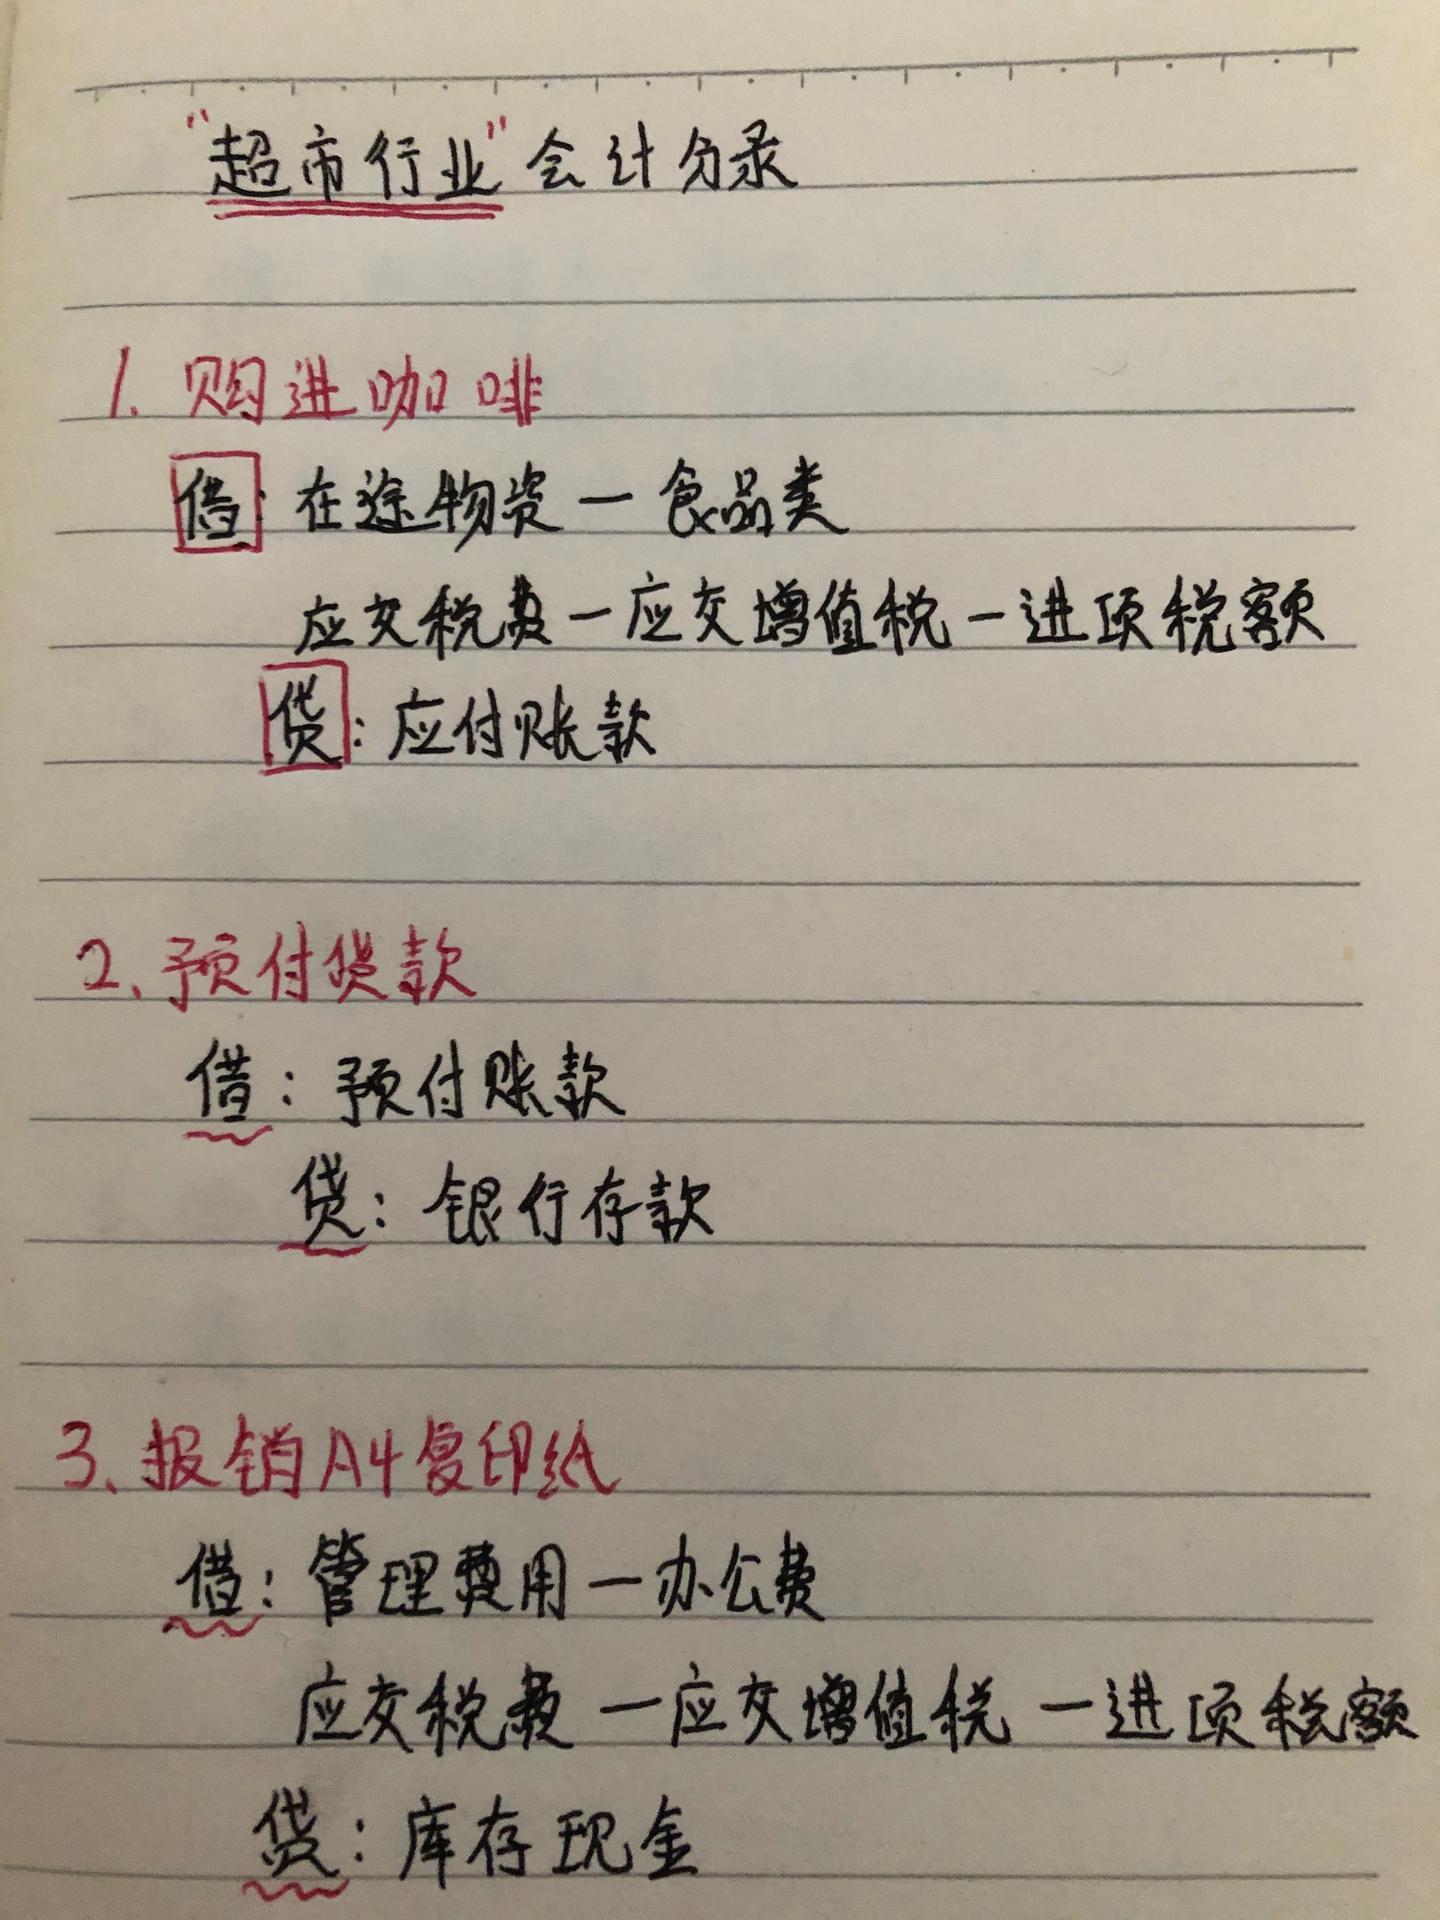 "超市行业"会计分录
1. 购进咖啡
借：在途物资—食品类
应交税费—应交增值税—进项税额
贷：应付账款
2、预付货款
借：预付账款
贷：银行存款
3、报销A4复印纸
借：管理费用—办公费
应交税费—应交增值税—进项税额
贷：库存现金